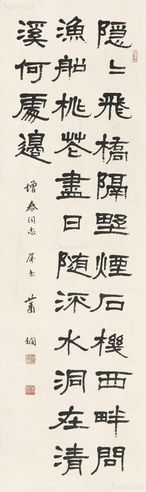 隱〻飛橋隔野煙石機西畔問
漁船桃花盡日随流水洞在清
溪何處邊
增泰同志
蕭嫻